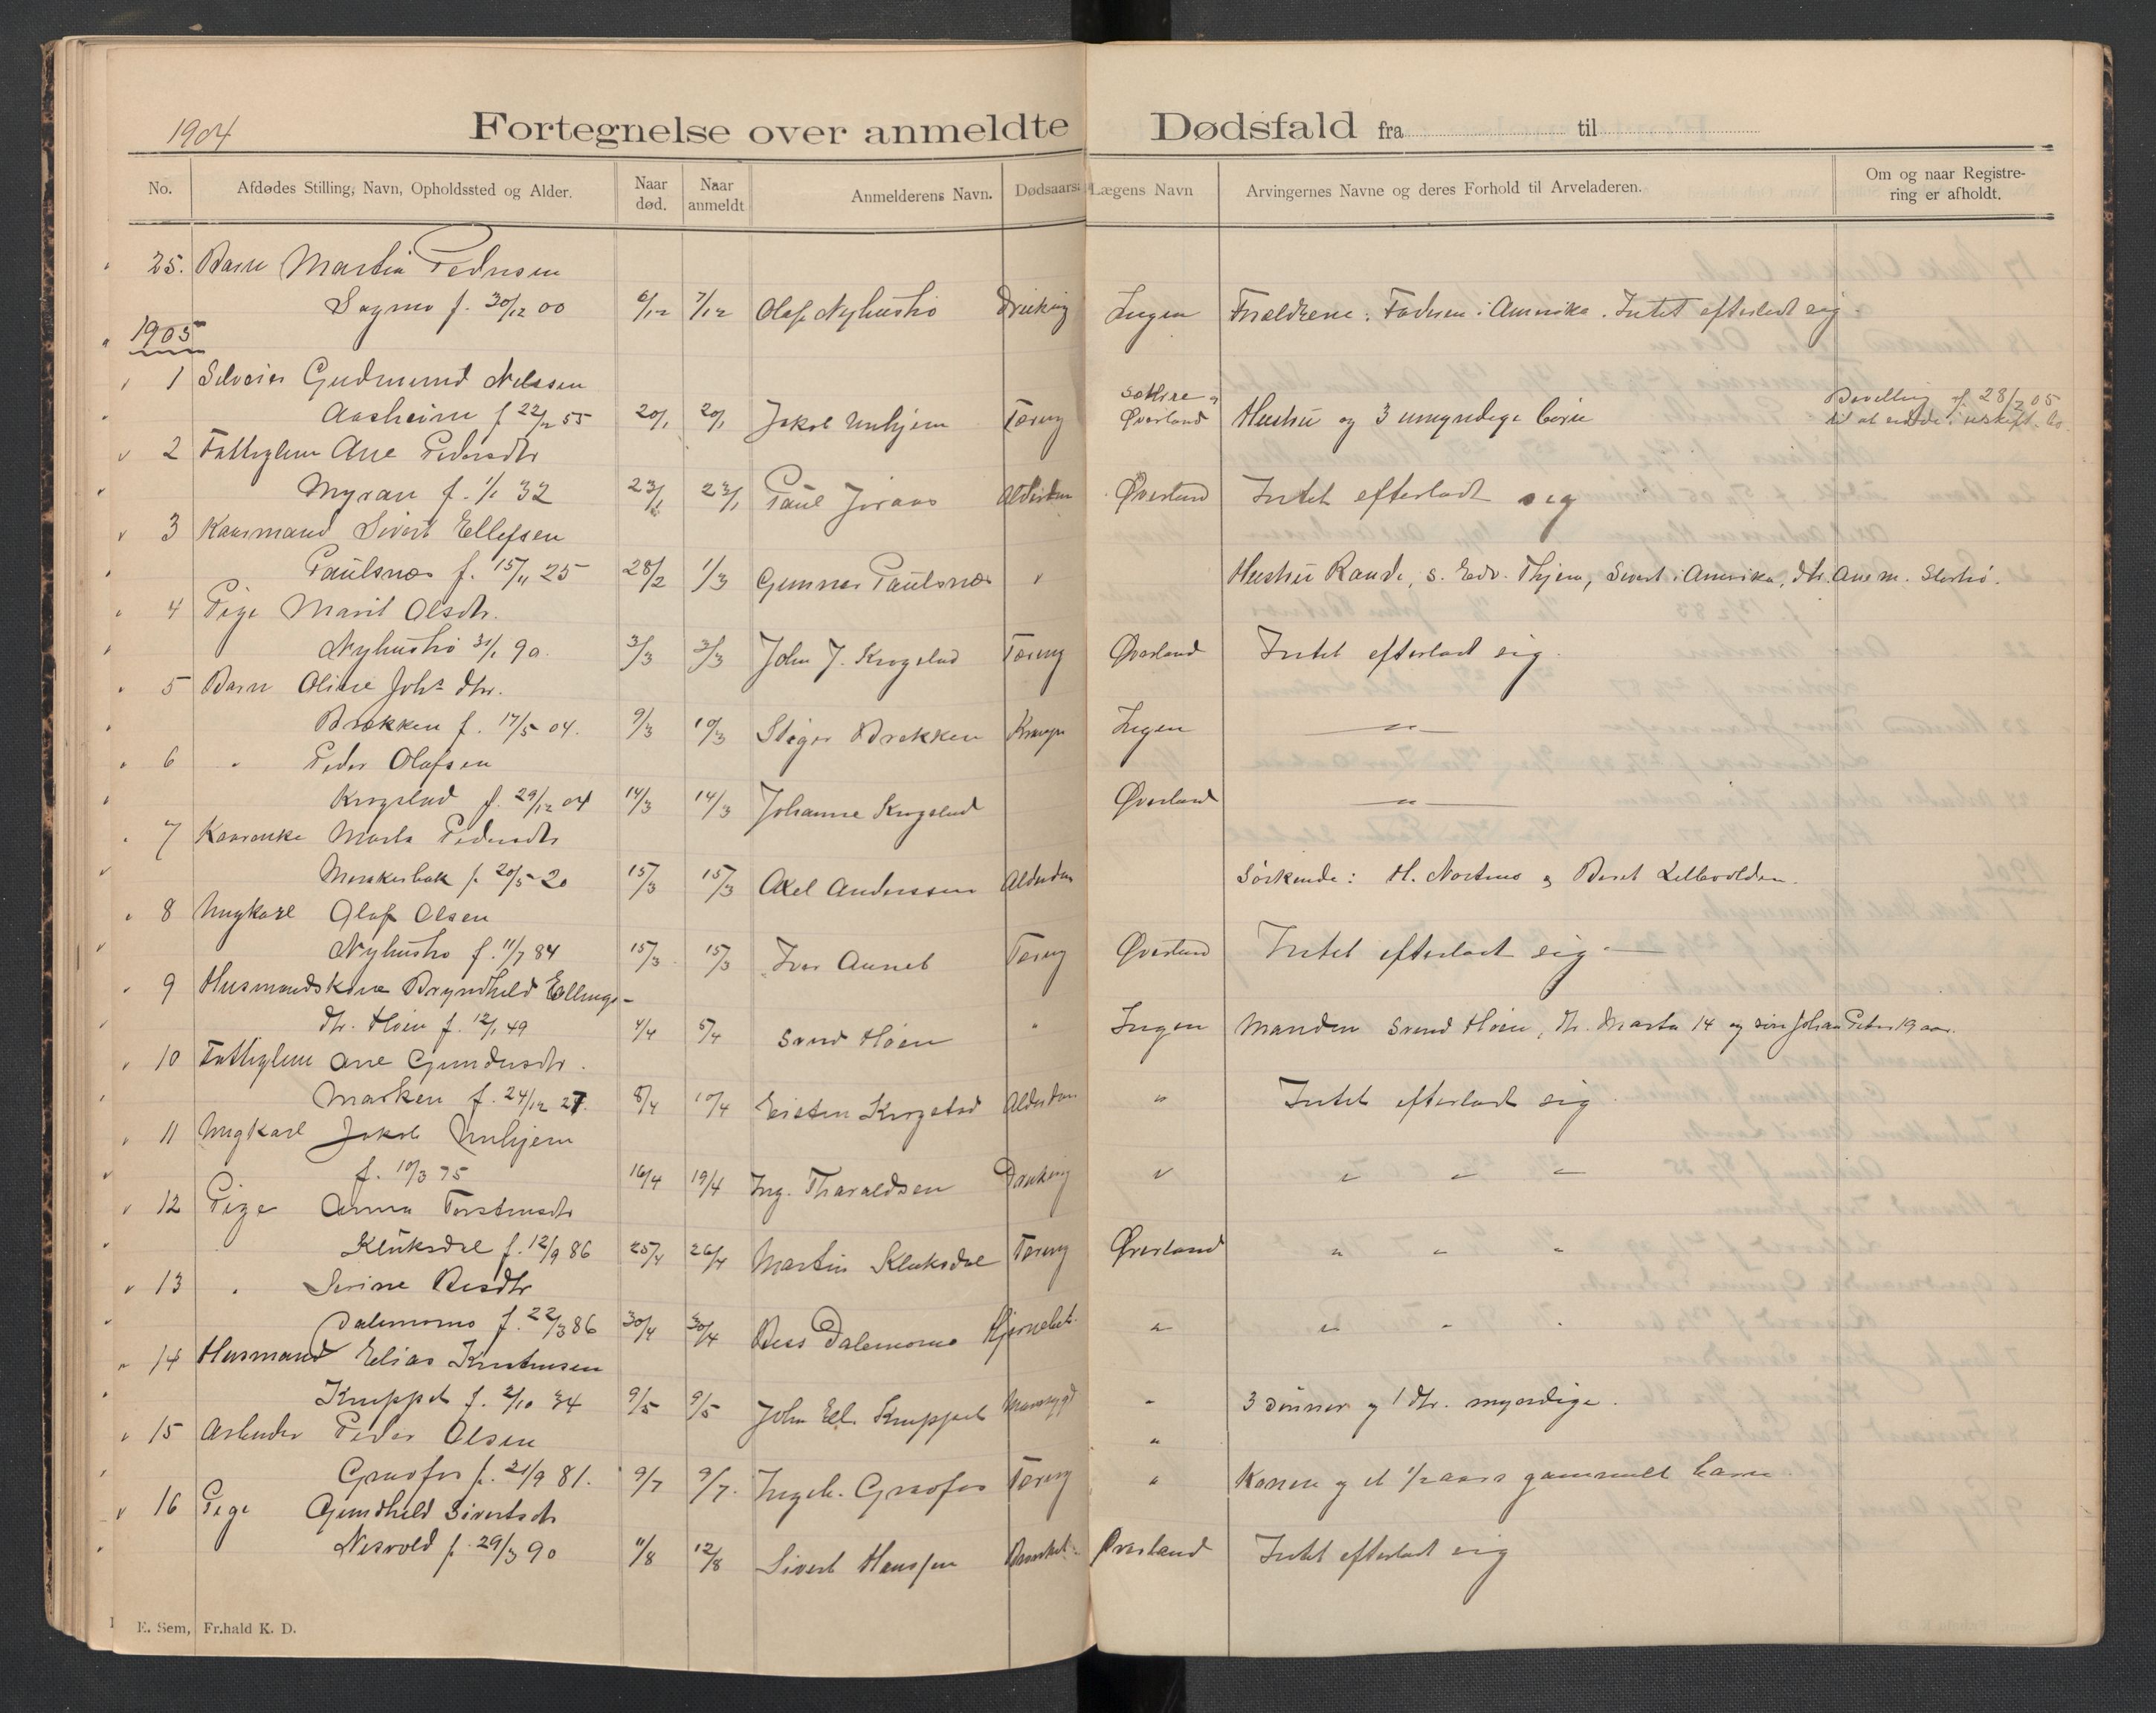 1904
Fortegnelse over anmeldte Dødsfald fra til
No. Afdødes Stilling, Navn, Opholdssted og Alder. Naar død. Naar anmeldt Anmelderens Navn. Dødsaars: Lægens Navn Arvingernes Navne og deres Forhold til Arveladeren. Om og naar Registrering er afholdt.
25. Barn Martin Pedersen
Sagmo f. 30/12 00 6/12 7/12 Olaf Nyhusmo Drukning Ingen Forældrene: Faderen i Amerika. Intet efterladt sig.
1905
1 Selveier Gudmund Nilssen
Aasheim f 22/2 55 20/1 20/1 Jakob Unhjem Tæring Sættre og Øverland Hustru og 3 umyndige børn Bevilling af 28/2 05 til at sidde i uskift. bo.
2 Fattiglem Ane Pedersdtr
Myran f. 1/1 32 23/1 23/1 Paul Joraas Alderdom Øverland Intet efterladt sig
3 Kaarmand Sivert Ellefsen
Paulsnes f. 15/11 25 28/2 1/3 Gunnar Paulsnes " Hustru Randi, s. Edv. Thjem, Sivert i Amerika, dtr. Ane M.
4 Pige Marit Olsdtr.
Nyhusmo 31/1 90. 3/3 3/3 John J. Krogstad Tæring Øverland Intet efterladt sig.
5 Barn Oline Johs dtr.
Brækken f. 17/5 04. 9/3 10/3 Brækken Ingen — " —
6 " Peder Olafsen
Krogstad f. 29/12 04 14/3 14/3 Johanne Krogstad Øverland — " —
7 Kaarenke Marta Pedersdtr
f. 20/5 20 15/3 15/3 Axel Anderssen Alderdom Søskende: H. og Beret
8 Ungkarl Olaf Olsen
Nyhusmo f. 11/7 84 15/3 15/3 Iver Aunet Tæring Øverland Intet efterladt sig. —
9 Husmandskone Bryndhild Ellings-
dtr. Høen f. 12/1 49 4/4 5/4 Svend Høen " Ingen Manden Svend Høen, dtr. Marta 14 og søn Johan Peter 19 aar.
10 Fattiglem Ane Gundersdtr.
Marken f. 24/12 27. 8/4 10/4 Eisten Krogstad Alderdom " Intet efterladt sig.
11 Ungkarl Jakob Unhjem
f. 10/3 75 16/4 19/4 Ing. Tharaldsen Drukning " " " "
12 Pige Anna Torstensdtr
Kluksdal f. 12/9 86 25/4 26/4 Martin Kluksdal Tæring Øverland " " "
13 " Serine Besdtr
Dalemomo f. 22/3 86 30/4 30/4 Bess Dalemomo Hjernebet. " " " "
14 Husmand Elias Kristensen
Kruppet f. 2/10 34 9/5 9/5 John El. Kruppet " 3 sønner og 1 dtr. myndige.
15 Arbeider Peder Olsen "
Graafos f. 21/9 81. 9/7 9/7. Ingeb. Graafos Tæring " Konen og et 1/2 aars gammelt barn.
16 Pige Gundhild Sivertsdtr
Nesvold f. 29/3 90 11/8 12/8 Sivert Hanssen Øverland Intet efterladt sig
E. Sem, Fr.hald K. D.